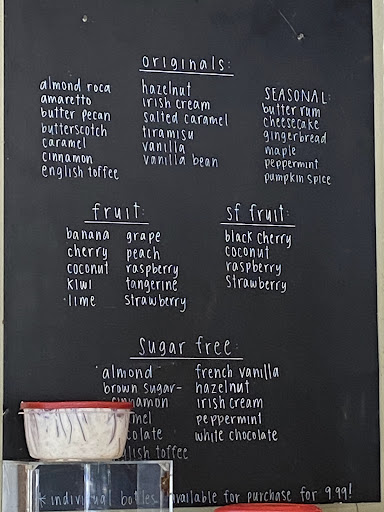 originals:
almond roca
amaretto
butter pecan
butterscotch
caramel
cinnamon
english toffee
hazelnut
irish cream
salted caramel
tiramisu
vanilla
vanilla bean
SEASONAL:
butter rum
cheesecake
gingerbread
maple
peppermint
pumpkin spice
fruit:
banana
cherry
coconut
kiwi
lime
grape
peach
raspberry
tangerine
strawberry
sf fruit:
black cherry
coconut
raspberry
strawberry
sugar free:
almond
brown sugar-
cinnamon
mel
colate
lish toffee
french vanilla
hazelnut
irish cream
peppermint
white chocolate
* individual bottles available for purchase for 9.99!